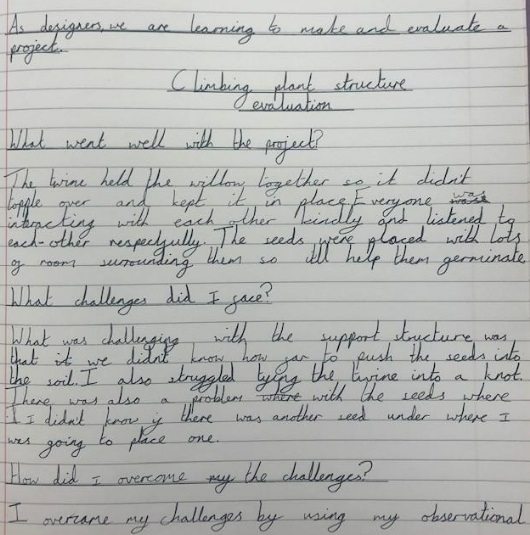 As designers, we are learning to make and evaluate a
project.
Climbing plant structure
evaluation
What went well with the project?
The twine held the willow together so it didn't
topple over and kept it in place. Everyone was
interacting with each other kindly and listened to
each-other respectfully. The seeds were placed with lots
of room surrounding them so ill help them germinate
What challenges did I face?
What was challenging with the support structure was
that it we didnt know how far to push the seeds into
the soil. I also struggled tying the twine into a knot.
There was also a problem where with the seeds where
I I didnt know if there was another seed under where I
was going to place one.
How did I overcome my the challenges?
I overcame my challenges by using my observational